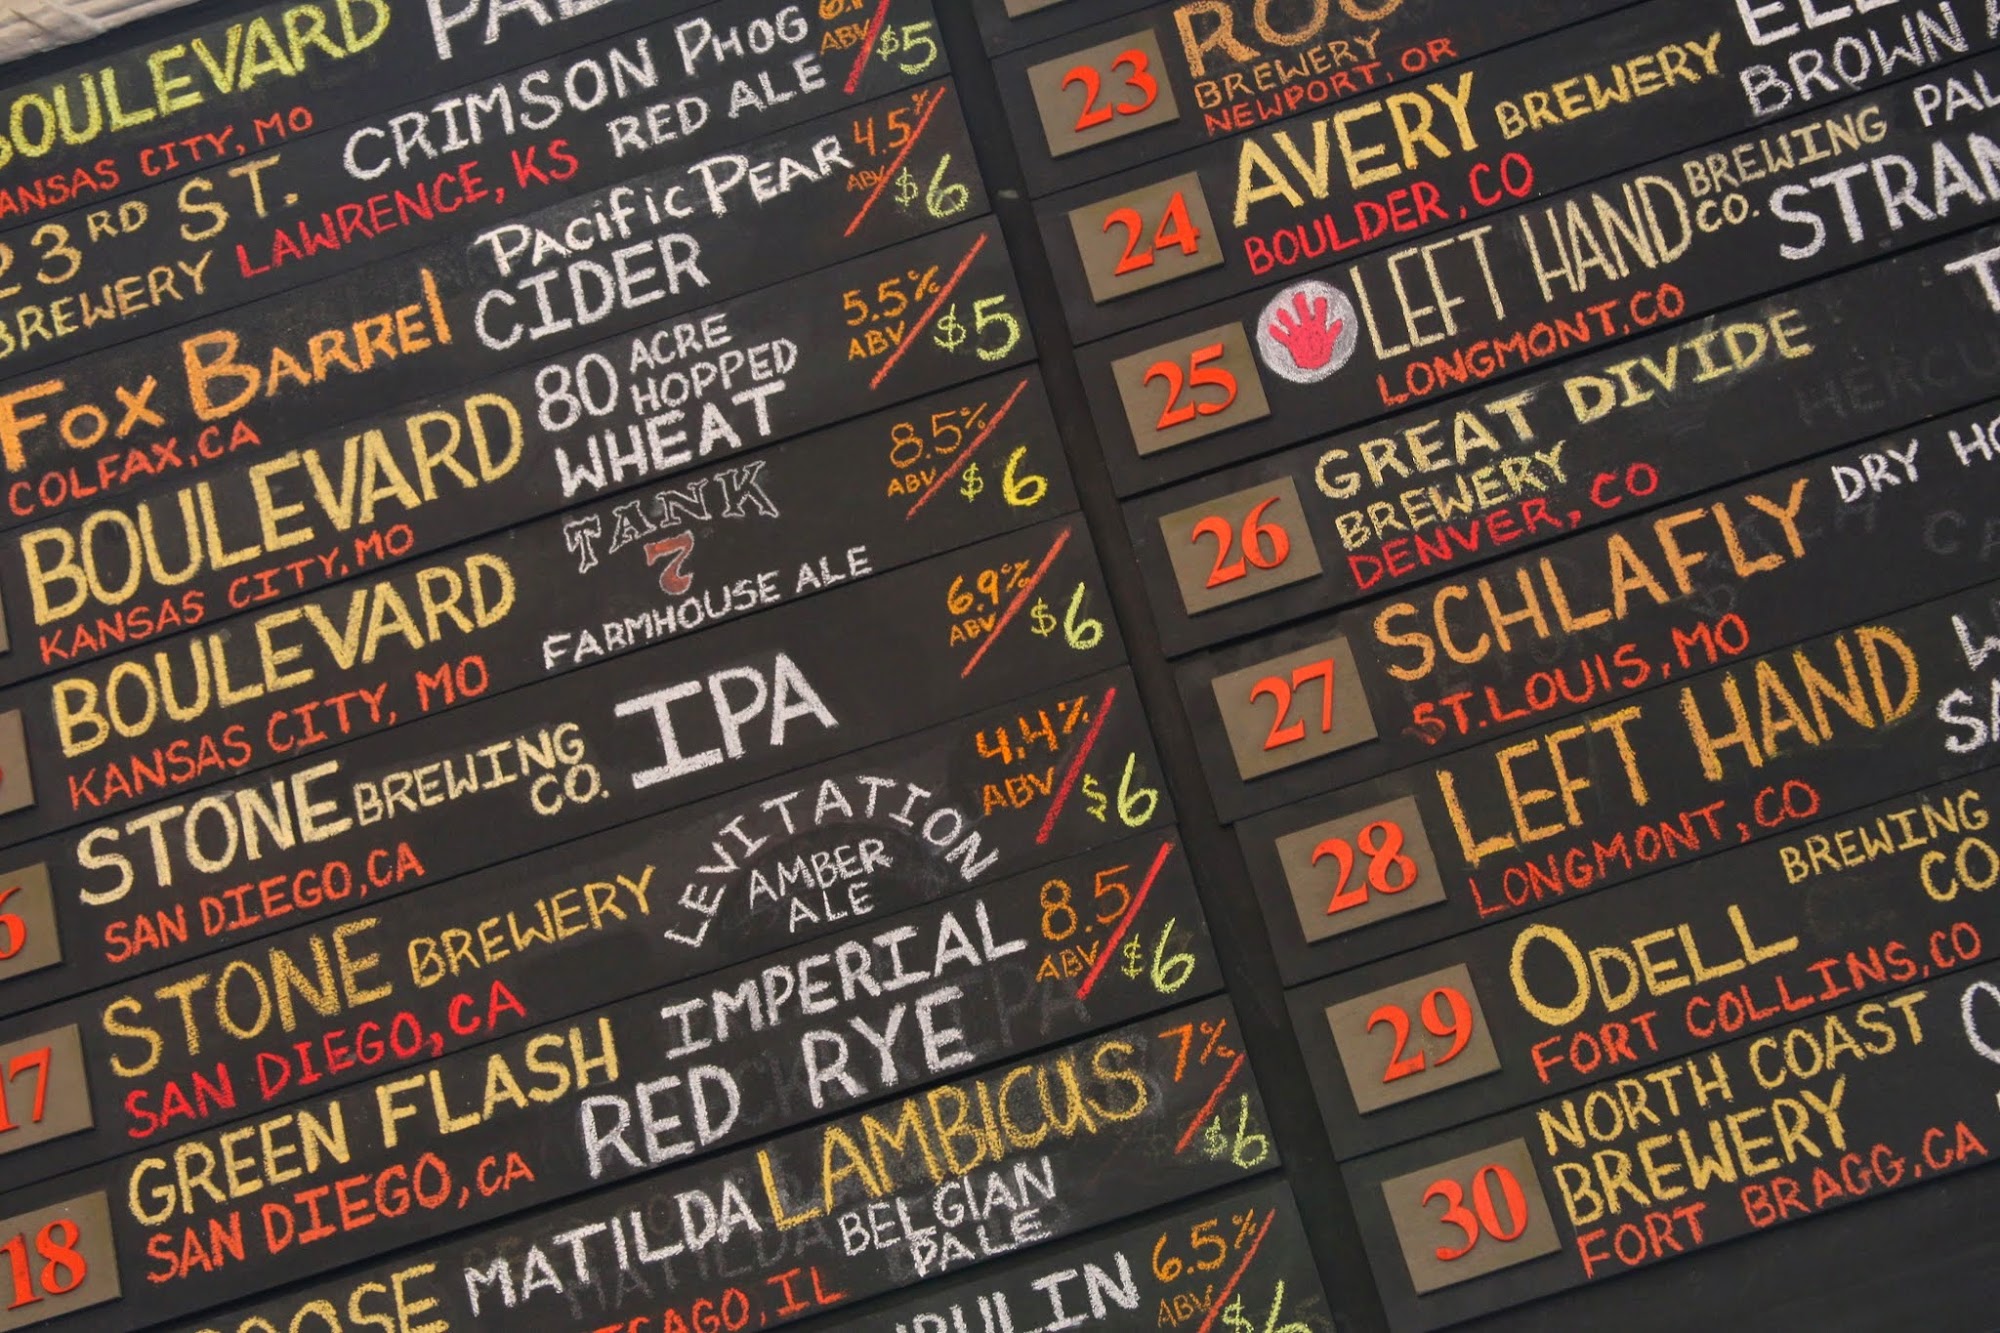 BOULEVARD
KANSAS CITY, MO
23RD ST.
BREWERY
LAWRENCE, KS
CRIMSON PHOG
RED ALE
ABV
$5
FOX BARREL
COLFAX, CA
PACIFIC PEAR
CIDER
4.5%
ABV
$6
BOULEVARD
KANSAS CITY, MO
80 ACRE
HOPPED
WHEAT
5.5%
ABV
$5
BOULEVARD
KANSAS CITY, MO
TANK
7
FARMHOUSE ALE
8.5%
ABV
$6
6
STONE BREWING
CO.
SAN DIEGO, CA
IPA
6.9%
ABV
$6
17
STONE BREWERY
SAN DIEGO, CA
LEVITATION
AMBER
ALE
4.4%
ABV
$6
18
GREEN FLASH
SAN DIEGO, CA
IMPERIAL
RED RYE
8.5
ABV
$6
MATILDA LAMBICUS
BELGIAN
PALE
IL
7%
$6
6.5%
ABV
$6
23
BREWERY
NEWPORT, OR
24
AVERY BREWERY
BOULDER, CO
BROWN
25
LEFT HAND BREWING
CO.
LONGMONT, CO
26
GREAT DIVIDE
BREWERY
DENVER, CO
27
SCHLAFLY
ST. LOUIS, MO
DRY
28
LEFT HAND
LONGMONT, CO
29
ODELL BREWING
CO
FORT COLLINS, CO
30
NORTH COAST
BREWERY
FORT BRAGG, CA